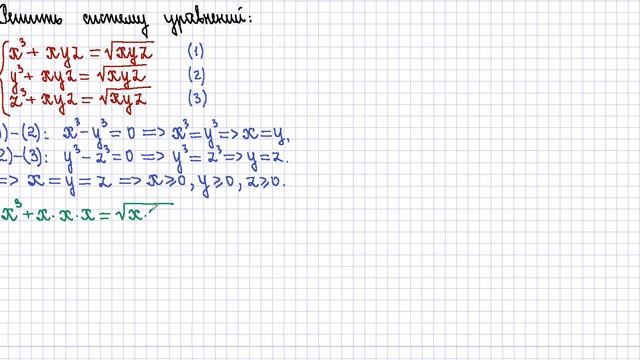 Решить систему уравнений:
x³ + xyz = √xyz (1)
y³ + xyz = √xyz (2)
z³ + xyz = √xyz (3)
)-(2): x³-y³=0 => x³=y³ => x=y,
2)-(3): y³-z³=0 => y³=z³ => y=z.
=> x=y=z => x≥0, y≥0, z≥0.
x³+x·x·x=√x·